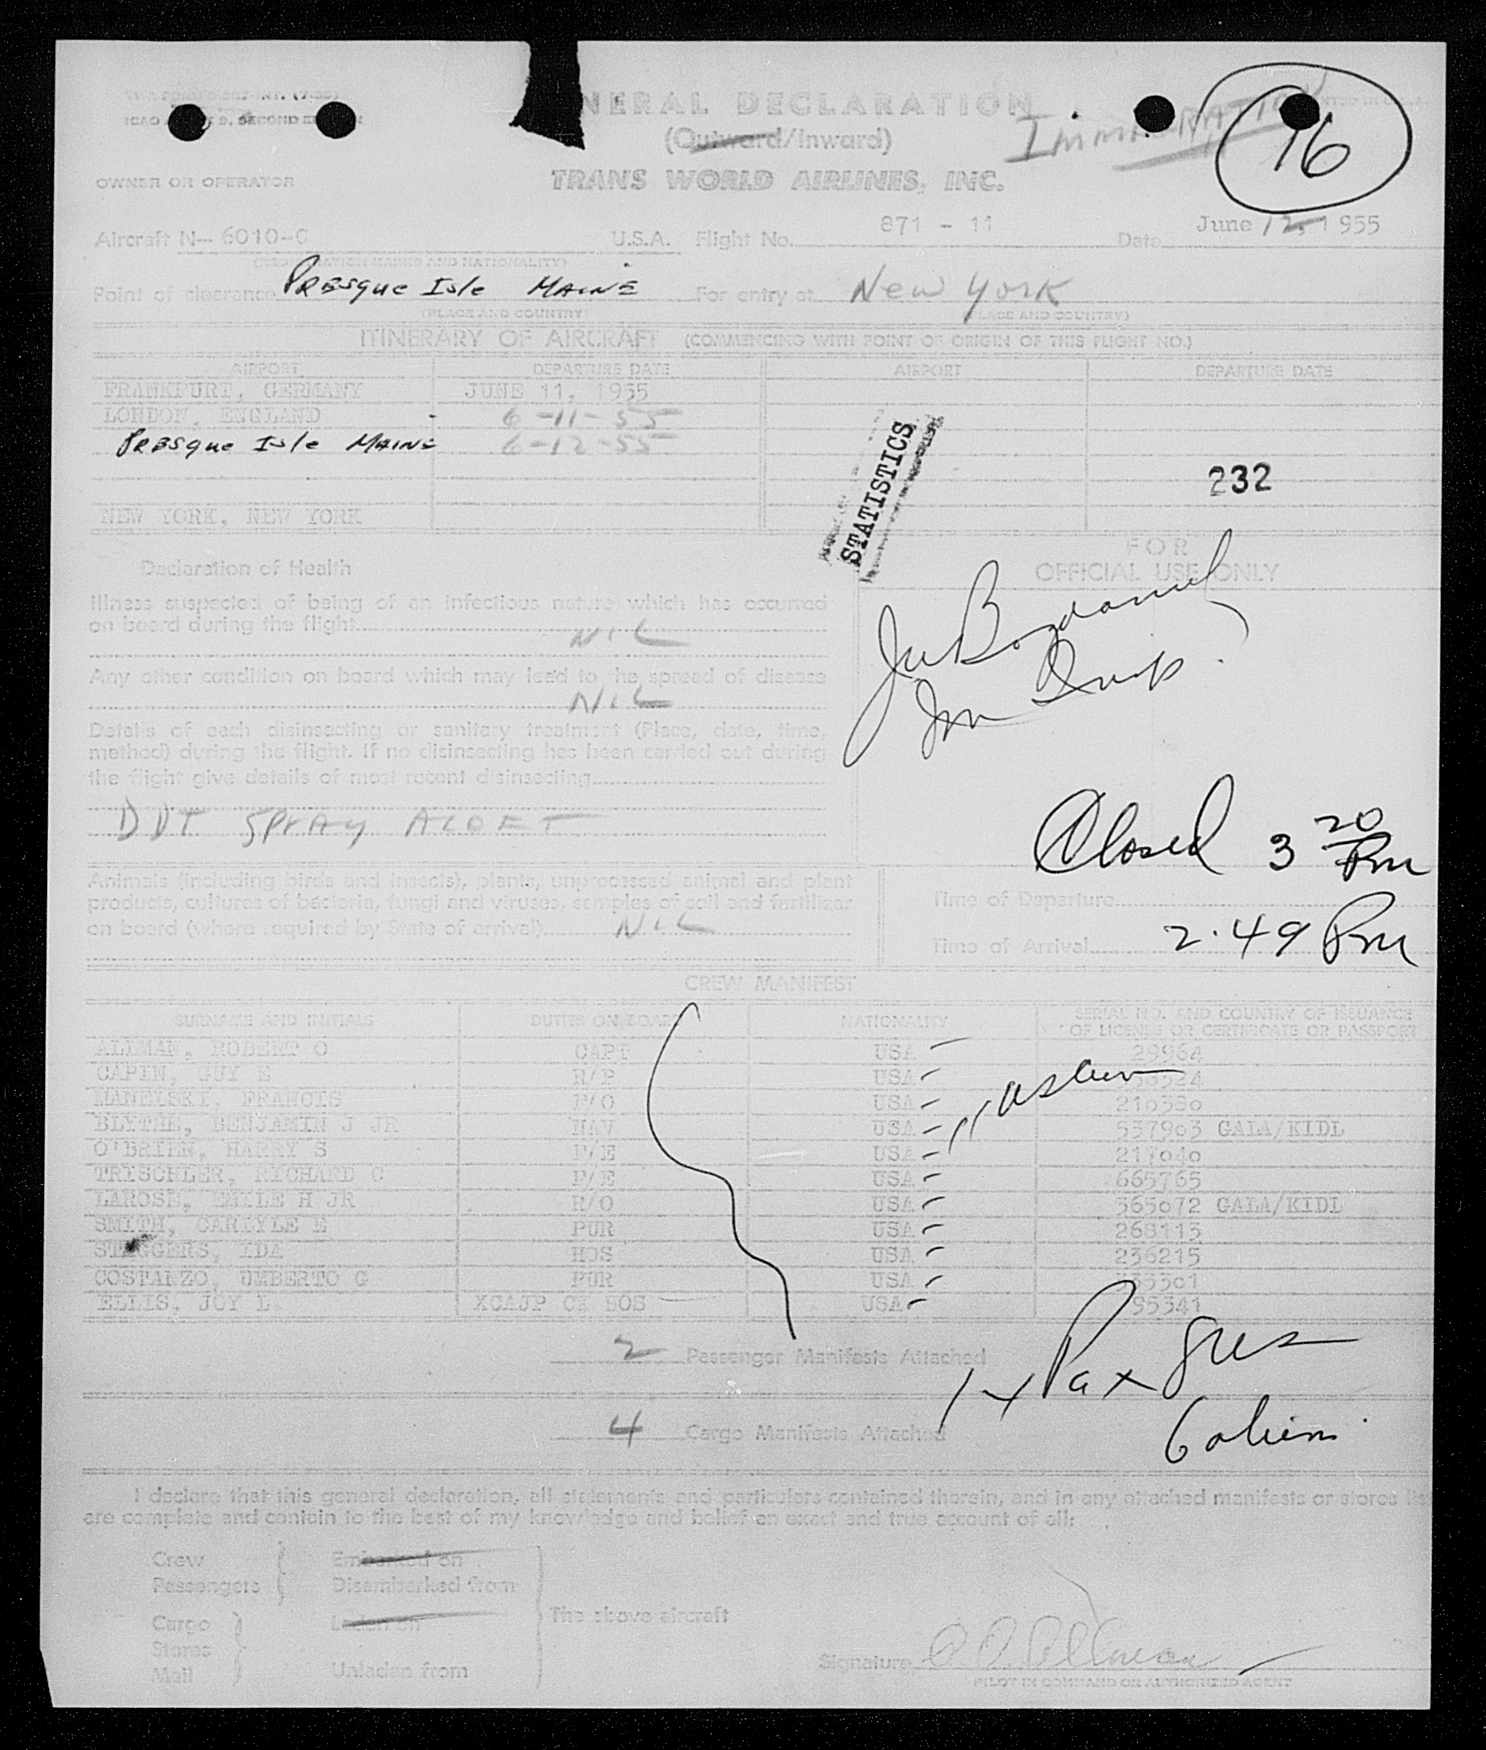 GENERAL DECLARATION
(Outward/Inward)
Immigration
16
OWNER OR OPERATOR
TRANS WORLD AIRLINES, INC.
Aircraft N-- 6010-C U.S.A. Flight No. 871 - 11 Date June 12, 1955
(REGISTRATION MARKS AND NATIONALITY)
Point of clearance Presque Isle Maine For entry at New York
(PLACE AND COUNTRY) (PLACE AND COUNTRY)
ITINERARY OF AIRCRAFT (COMMENCING WITH POINT OF ORIGIN OF THIS FLIGHT NO.)
AIRPORT DEPARTURE DATE AIRPORT DEPARTURE DATE
FRANKFURT, GERMANY JUNE 11, 1955
LONDON, ENGLAND 6-11-55
Presque Isle Maine 6-12-55
STATISTICS
232
NEW YORK, NEW YORK
FOR
OFFICIAL USE ONLY
Declaration of Health
Illness suspected of being of an infectious nature which has occurred
on board during the flight NIL
Any other condition on board which may lead to the spread of disease
NIL
Details of each disinsecting or sanitary treatment (Place, date, time,
method) during the flight. If no disinsecting has been carried out during
the flight give details of most recent disinsecting
DDT SPRAY ALOFT
Closed 3 20 PM
Animals (including birds and insects), plants, unprocessed animal and plant
products, cultures of bacteria, fungi and viruses, samples of soil and fertilizer
on board (where required by State of arrival) NIL
Time of Departure
Time of Arrival 2.49 PM
CREW MANIFEST
SURNAME AND INITIALS DUTIES ON BOARD NATIONALITY SERIAL NO. AND COUNTRY OF ISSUANCE
OF LICENSE OR CERTIFICATE OR PASSPORT
ALLMAN, ROBERT O CAPT USA 29964
CAPIN, GUY E R/P USA
FRANCIS F/O USA 210380
BLYTHE, BENJAMIN J JR NAV USA 537903 GALA/KIDL
O'BRIEN, HARRY S F/E USA 217040
TRISCHLER, RICHARD C F/E USA 665765
LAROSE, EMILE H JR R/O USA 565072 GALA/KIDL
SMITH, CARLYLE E PUR USA 268113
STAGGERS, IDA HOS USA 236215
COSTANZO, UMBERTO G PUR USA
ELLIS, JOY L. HOS USA 95341
2 Passenger Manifests Attached
4 Cargo Manifests Attached
6 aliens
I declare that this general declaration, all statements and particulars contained therein, and in any attached manifests or stores list
are complete and contain to the best of my knowledge and belief an exact and true account of all:
Crew Embarked on
Passengers Disembarked from
Cargo Laden on The above aircraft
Stores
Mail Unladen from
Signature R. O. Allman
PILOT IN COMMAND OR AUTHORIZED AGENT